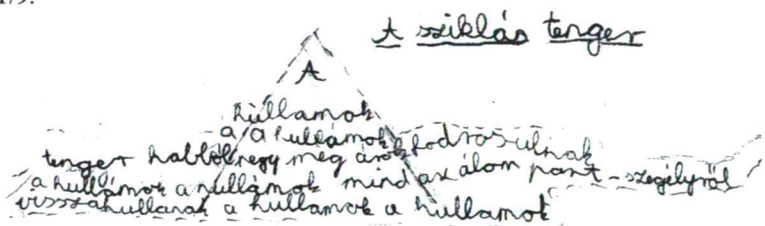 A sziklás tenger
A
hullamok
a a hullámok fodrosulnak
tenger habból egy meg
a hullámok a hullamok mind az álom part-szegélyről
visszahullanak a hullamok a hullamok